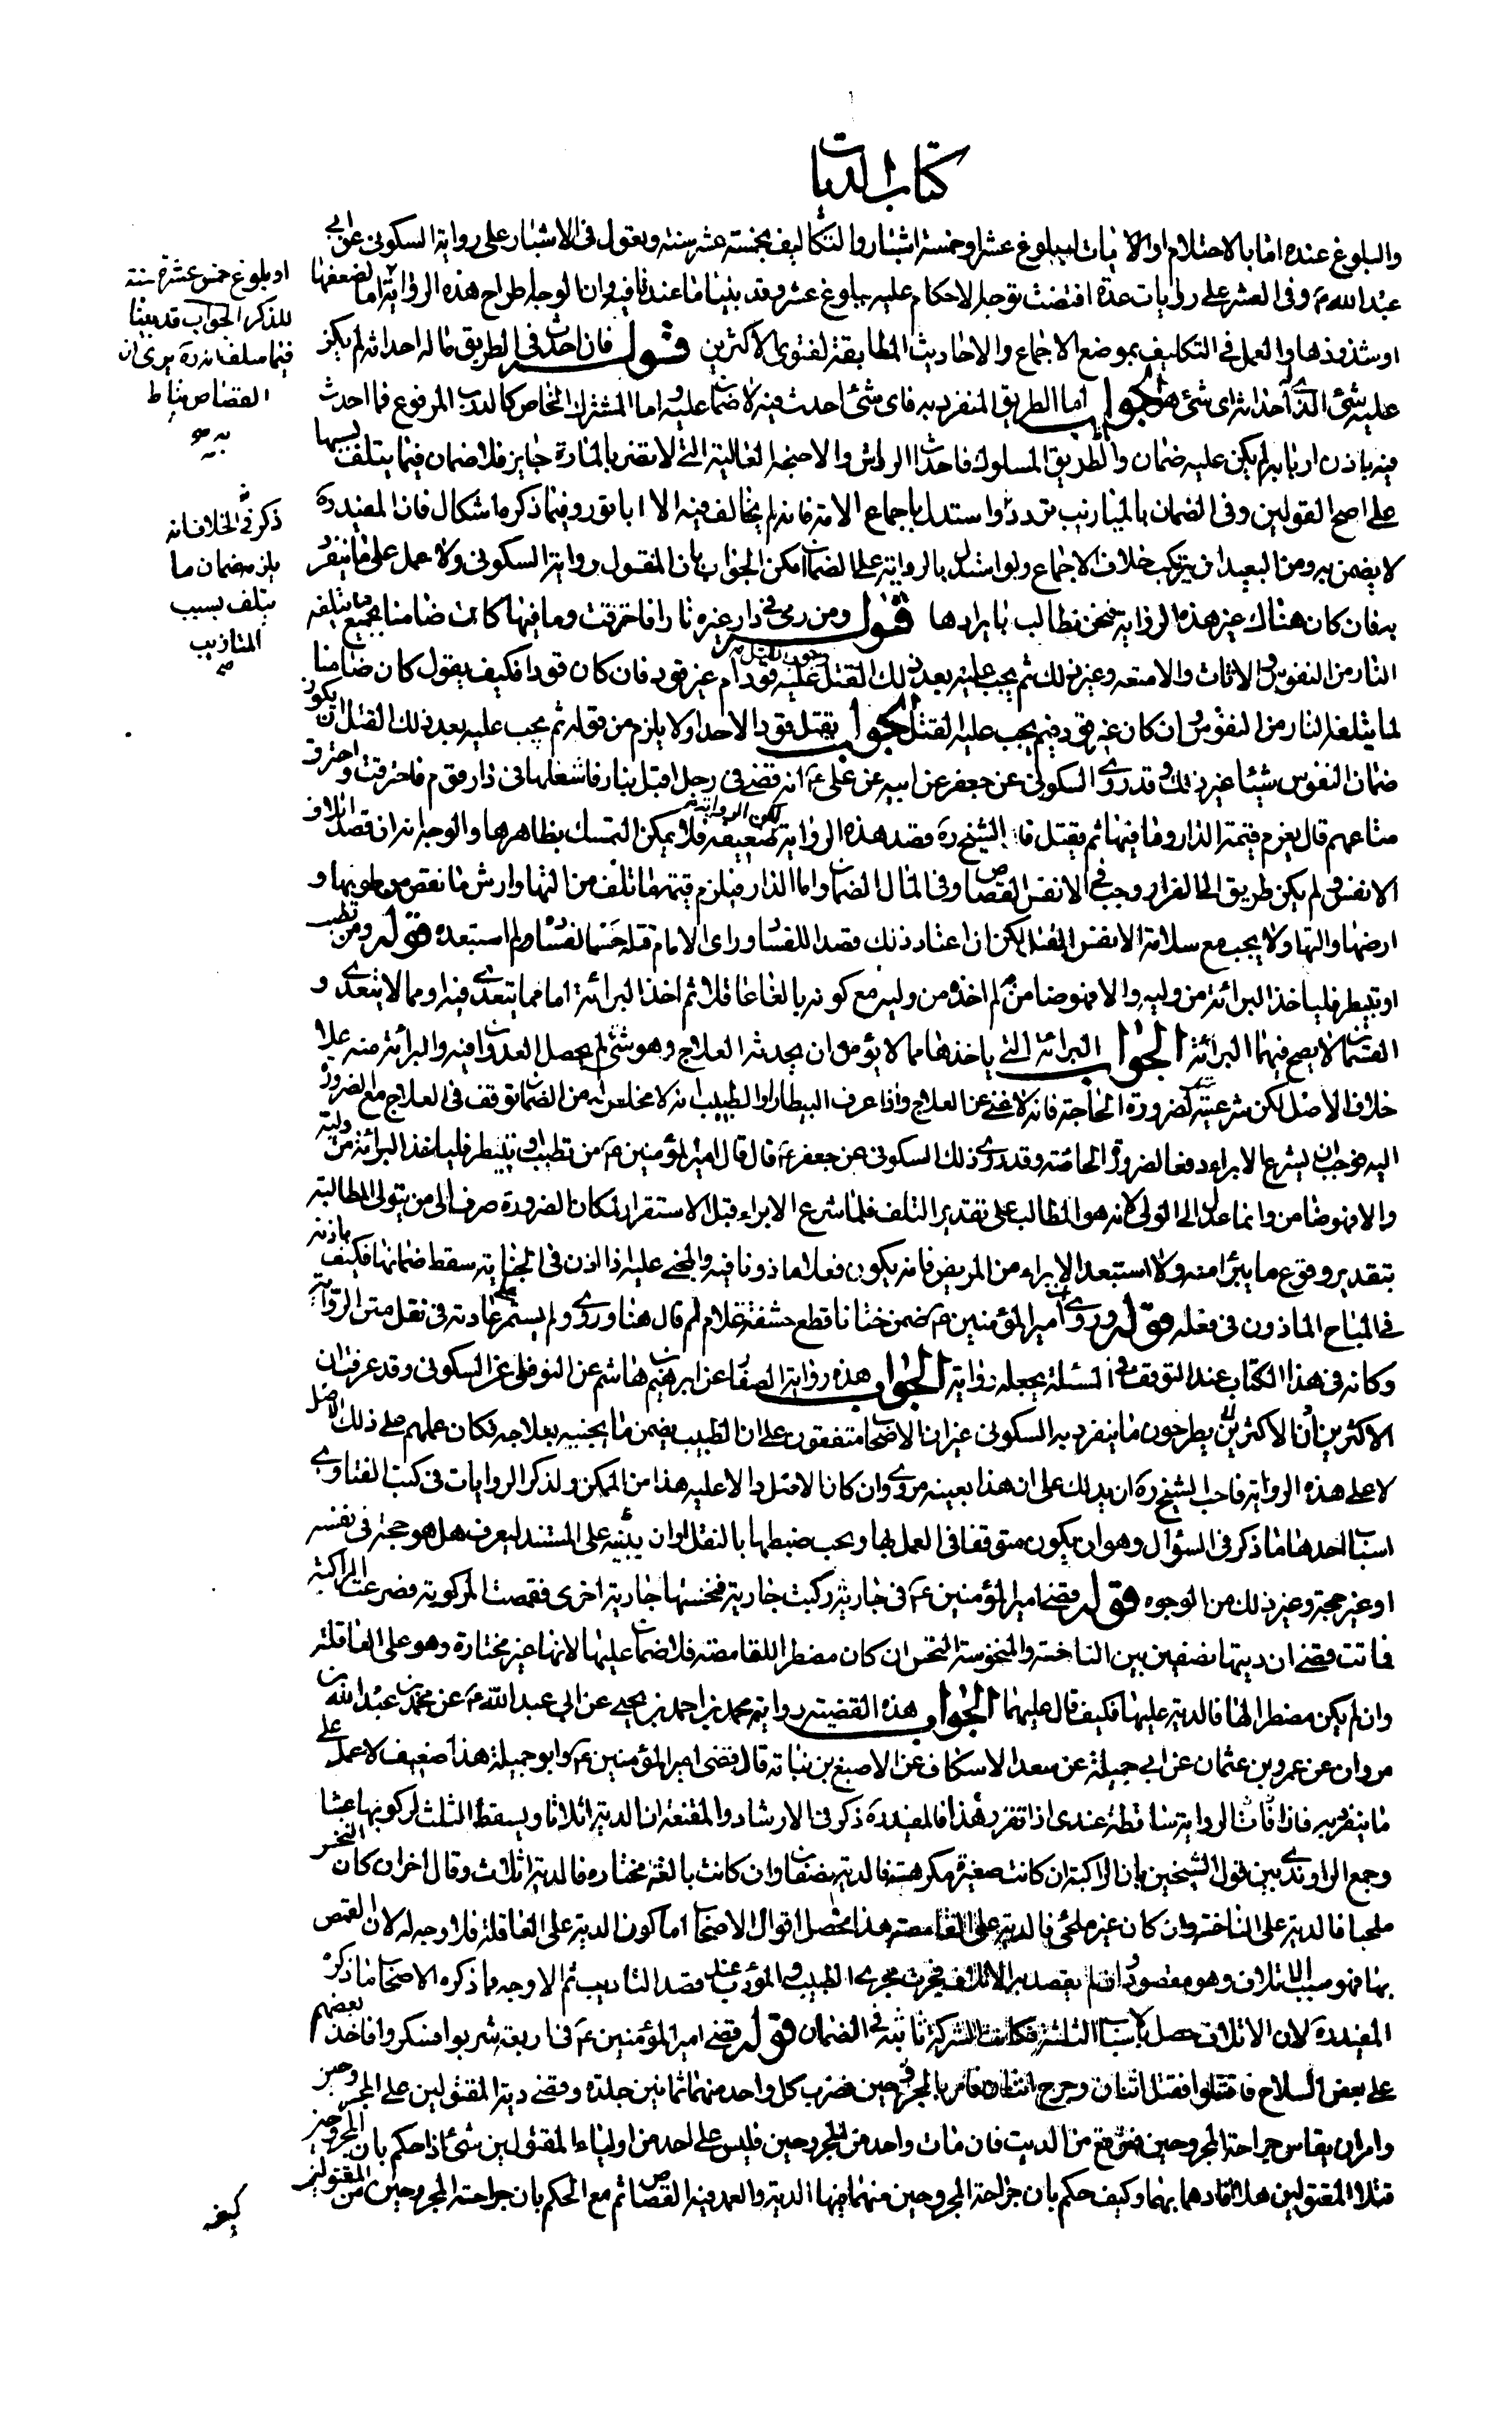 كتاب الديات
والبلوغ عنده اما بالاحتلام او الانبات او ببلوغ عشر او خمسة اشبار والتكاليف بخمسة عشر سنة ويعول في الاشبار على رواية السكوني عن ابي
عبد الله ع وفي العشر على روايات عدة اقتضت توجه الاحكام عليه ببلوغ عشر وقد بينا ما عندنا فيه وان الوجه اطراح هذه الرواية اما لضعفها
او شذوذها والعمل في التكاليف بموضع الاجماع والاحاديث المطابقة لفتوى الاكثرين قوله فان احدث في الطريق ماله احداثه لم يكن
عليه شئ الذي له احداثه اى شئ هو الجواب اما الطريق المنفرد به فاى شئ احدث فيه لا ضمان عليه واما المشترك الخاص كالدرب المرفوع فما احدث
فيه باذن اربابه لم يكن عليه ضمان والطريق المسلوك فاحداث الرواشن والاجنحة العالية التي لا تضر بالمارة جايز فلا ضمان فيما يتلف بسببها
على اصح القولين وفي الضمان بالميازيب تردد واستدل باجماع الامة فانه لم يخالف فيه الا وفيما ذكره اشكال فان المفيد ره
لا يضمن به ومن البعيد ان يرتكب خلاف الاجماع ولو استدل بالرواية على الضمان امكن الجواب بان المنقول رواية السكوني ولا عمل على ما ينفرد
به فان كان هناك غير هذه الرواية فنحن نطالب بايرادها قوله ومن رمى في دار غيره نارا فاحترقت وما فيها كان ضامنا بجميع ما يتلفه
النار من النفوس والاثاث والامتعه وغير ذلك ثم يجب عليه بعد ذلك القتل عليه قودا ام غير قود فان كان قودا فكيف يقول كان ضامنا
لما يتلفه النار من النفوس وان كان غير قود فبم يجب عليه القتل الجواب يقتل قودا لاحدا ولا يلزم من قوله ثم يجب عليه بعد ذلك القتل ان يكون
ضمان النفوس شيئا غير ذلك وقد روى السكوني عن جعفر عن ابيه عن علي ع انه قضى في رجل اقبل بنار فاشعلها في دار قوم فاحترقت واحترق
متاعهم قال يغرم قيمة الدار وما فيها ثم يقتل قال الشيخ ره فقصد هذه الرواية لكن الرواية ضعيفه فلا يمكن التمسك بظاهرها والوجه انه ان قصد اتلاف
الانفس ولم يكن طريق الى الفرار وجب في الانفس القصاص وفي المال الضمان واما الدار فيلزم قيمة ما تلف من التها وارش ما نقص من طوبها و
ارضها والتها ولا يجب مع سلامة الانفس القتل لكن ان اعتاد ذلك قصدا للفساد وراى الامام قتله حسما لفساده لم استبعده قوله ومن تطبب
او تبيطر فلياخذ البرائة من وليه والا فهو ضامن لم اخذه من وليه مع كونه بالغا عاقلا ثم اخذ البرائة اما مما يتعدى فيه او مما لا يتعدى و
القسمان لا يصح فيهما البرائة الجواب البرائة التي ياخذها مما لا يؤمن ان يحدثه العلاج وهو شئ لم يحصل العدوان فيه والبرائة منه على
خلاف الاصل لكن شرعيته لضرورة الحاجة فانه لا غنى عن العلاج واذا عرف البيطار او الطبيب انه لا مخلص له من الضمان توقف في العلاج مع الضرورة
اليه فوجب ان يشرع الابراء دفعا لضرورة الحاجة وقد روى ذلك السكوني عن جعفر ع قال قال امير المؤمنين ع من تطبب او تبيطر فلياخذ البرائة من وليه
والا فهو ضامن وانما عدل الى الولي لانه هو المطالب على تقدير التلف فلما شرع الابراء قبل الاستقرار لمكان الضرورة صرف الى من يتولى المطالبة
بتقدير وقوع ما يبرا منه ولا استبعد الابراء من المريض فانه يكون فعلا ماذونا فيه والمجنى عليه اذا اذن في الجناية سقط ضمانها فكيف باذنه
في المباح الماذون في فعله قوله وروى ان امير المؤمنين ع ضمن ختانا قطع حشفة غلام لم قال هنا وروى ولم يستمر على عادته في نقل متن الرواية
وكانه في هذا الكتاب عند التوقف في المسئلة يجعله رواية الجواب هذه رواية الصفار عن ابرهيم بن هاشم عن النوفلي عن السكوني وقد عرفت ان
الاكثرين يطرحون ما ينفرد به السكوني غير ان الاصحاب متفقون على ان الطبيب يضمن ما يجنيه بعلاجه فكان عملهم على ذلك الاصل
لا على هذه الرواية فاحب الشيخ ره ان يدلك على ان هذا بعينه مروى وان كان الاصل دالا عليه هذا من الممكن ولذكر الروايات في كتب الفتاوى
اسباب احدها ما ذكر في السؤال وهو ان يكون متوقفا في العمل بها ويحب ضبطها بالنقل او ان ينبه على المستند ليعرف هل هو حجة في نفسه
او غير حجة وغير ذلك من الوجوه قوله قضى امير المؤمنين ع في جارية ركبت جارية فنخستها جارية اخرى فقمصت المركوبة فصرعت الراكبة
فماتت فقضى ان ديتها نصفين بين الناخسة والمنخوسة النخس ان كان مضطرا للقامصة فلا ضمان عليها لانها غير مختارة وهو على العاقلة
وان لم يكن مضطرا لها فالدية عليها فكيف قال عليهما الجواب هذه القضية رواية محمد بن احمد بن يحيى عن ابي عبد الله ع عن محمد بن عبد الله بن
مروان عن عمرو بن عثمان عن ابي جميلة عن سعد الاسكاف عن الاصبغ بن نباته قال قضى امير المؤمنين ع وابو جميلة هذا ضعيف لا عمل على
ما ينفرد به فاذا الرواية ساقطة عندى اذا تقرر هذا فالمفيد ره ذكر في الارشاد والمقنعة ان الدية اثلاثا ويسقط الثلث لركوبها عبثا
وجمع الراوندى بين قول الشيخين بان الراكبة ان كانت صغيرة مكرهة فالدية نصفان وان كانت بالغة مختاره فالدية اثلاث وقال اخر ان كان النخس
ملجيا فالدية على الناخسة وان كان غير ملجئ فالدية على القامصة هذا محصل اقوال الاصحاب اما كون الدية على العاقلة فلا وجه له لان القمص
بها فهو سبب الاتلاف وهو مقصود وان لم يقصد به الاتلاف فجرت مجرى الطبيب والمؤدب عند قصد التاديب ثم الاوجه مما ذكره الاصحاب ما ذكره
المفيد ره لان الاتلاف حصل بالاسباب الثلثة فكانت الشركة ثابته في الضمان قوله قضى امير المؤمنين ع في اربعة شربوا فسكروا فاخذ بعضهم
على بعض السلاح فاقتتلوا فقتل اثنان وجرح اثنان فامر بالمجروحين فضرب كل واحد منهما ثمانين جلدة وقضى دية المقتولين على المجروحين
وامر ان يقاس جراحة المجروحين فترفع من الدية فان مات واحد من المجروحين فليس على احد من اولياء المقتولين شئ اذا حكم بان المجروحين
قتلا المقتولين هلا اقادهما بهما وكيف حكم بان جراحة المجروحين منهما فيها الدية والعمد فيه القصاص ثم مع الحكم بان جراحة المجروحين من المقتولين
او بلوغ خمس عشرة سنة
للذكر الجواب قد بينا
فيما سلف انه ره يرى ان
القصاص يناط
به
ذكر في الخلاف انه
يلزمه ضمان ما
يتلف بسبب
المتازيب
كيف